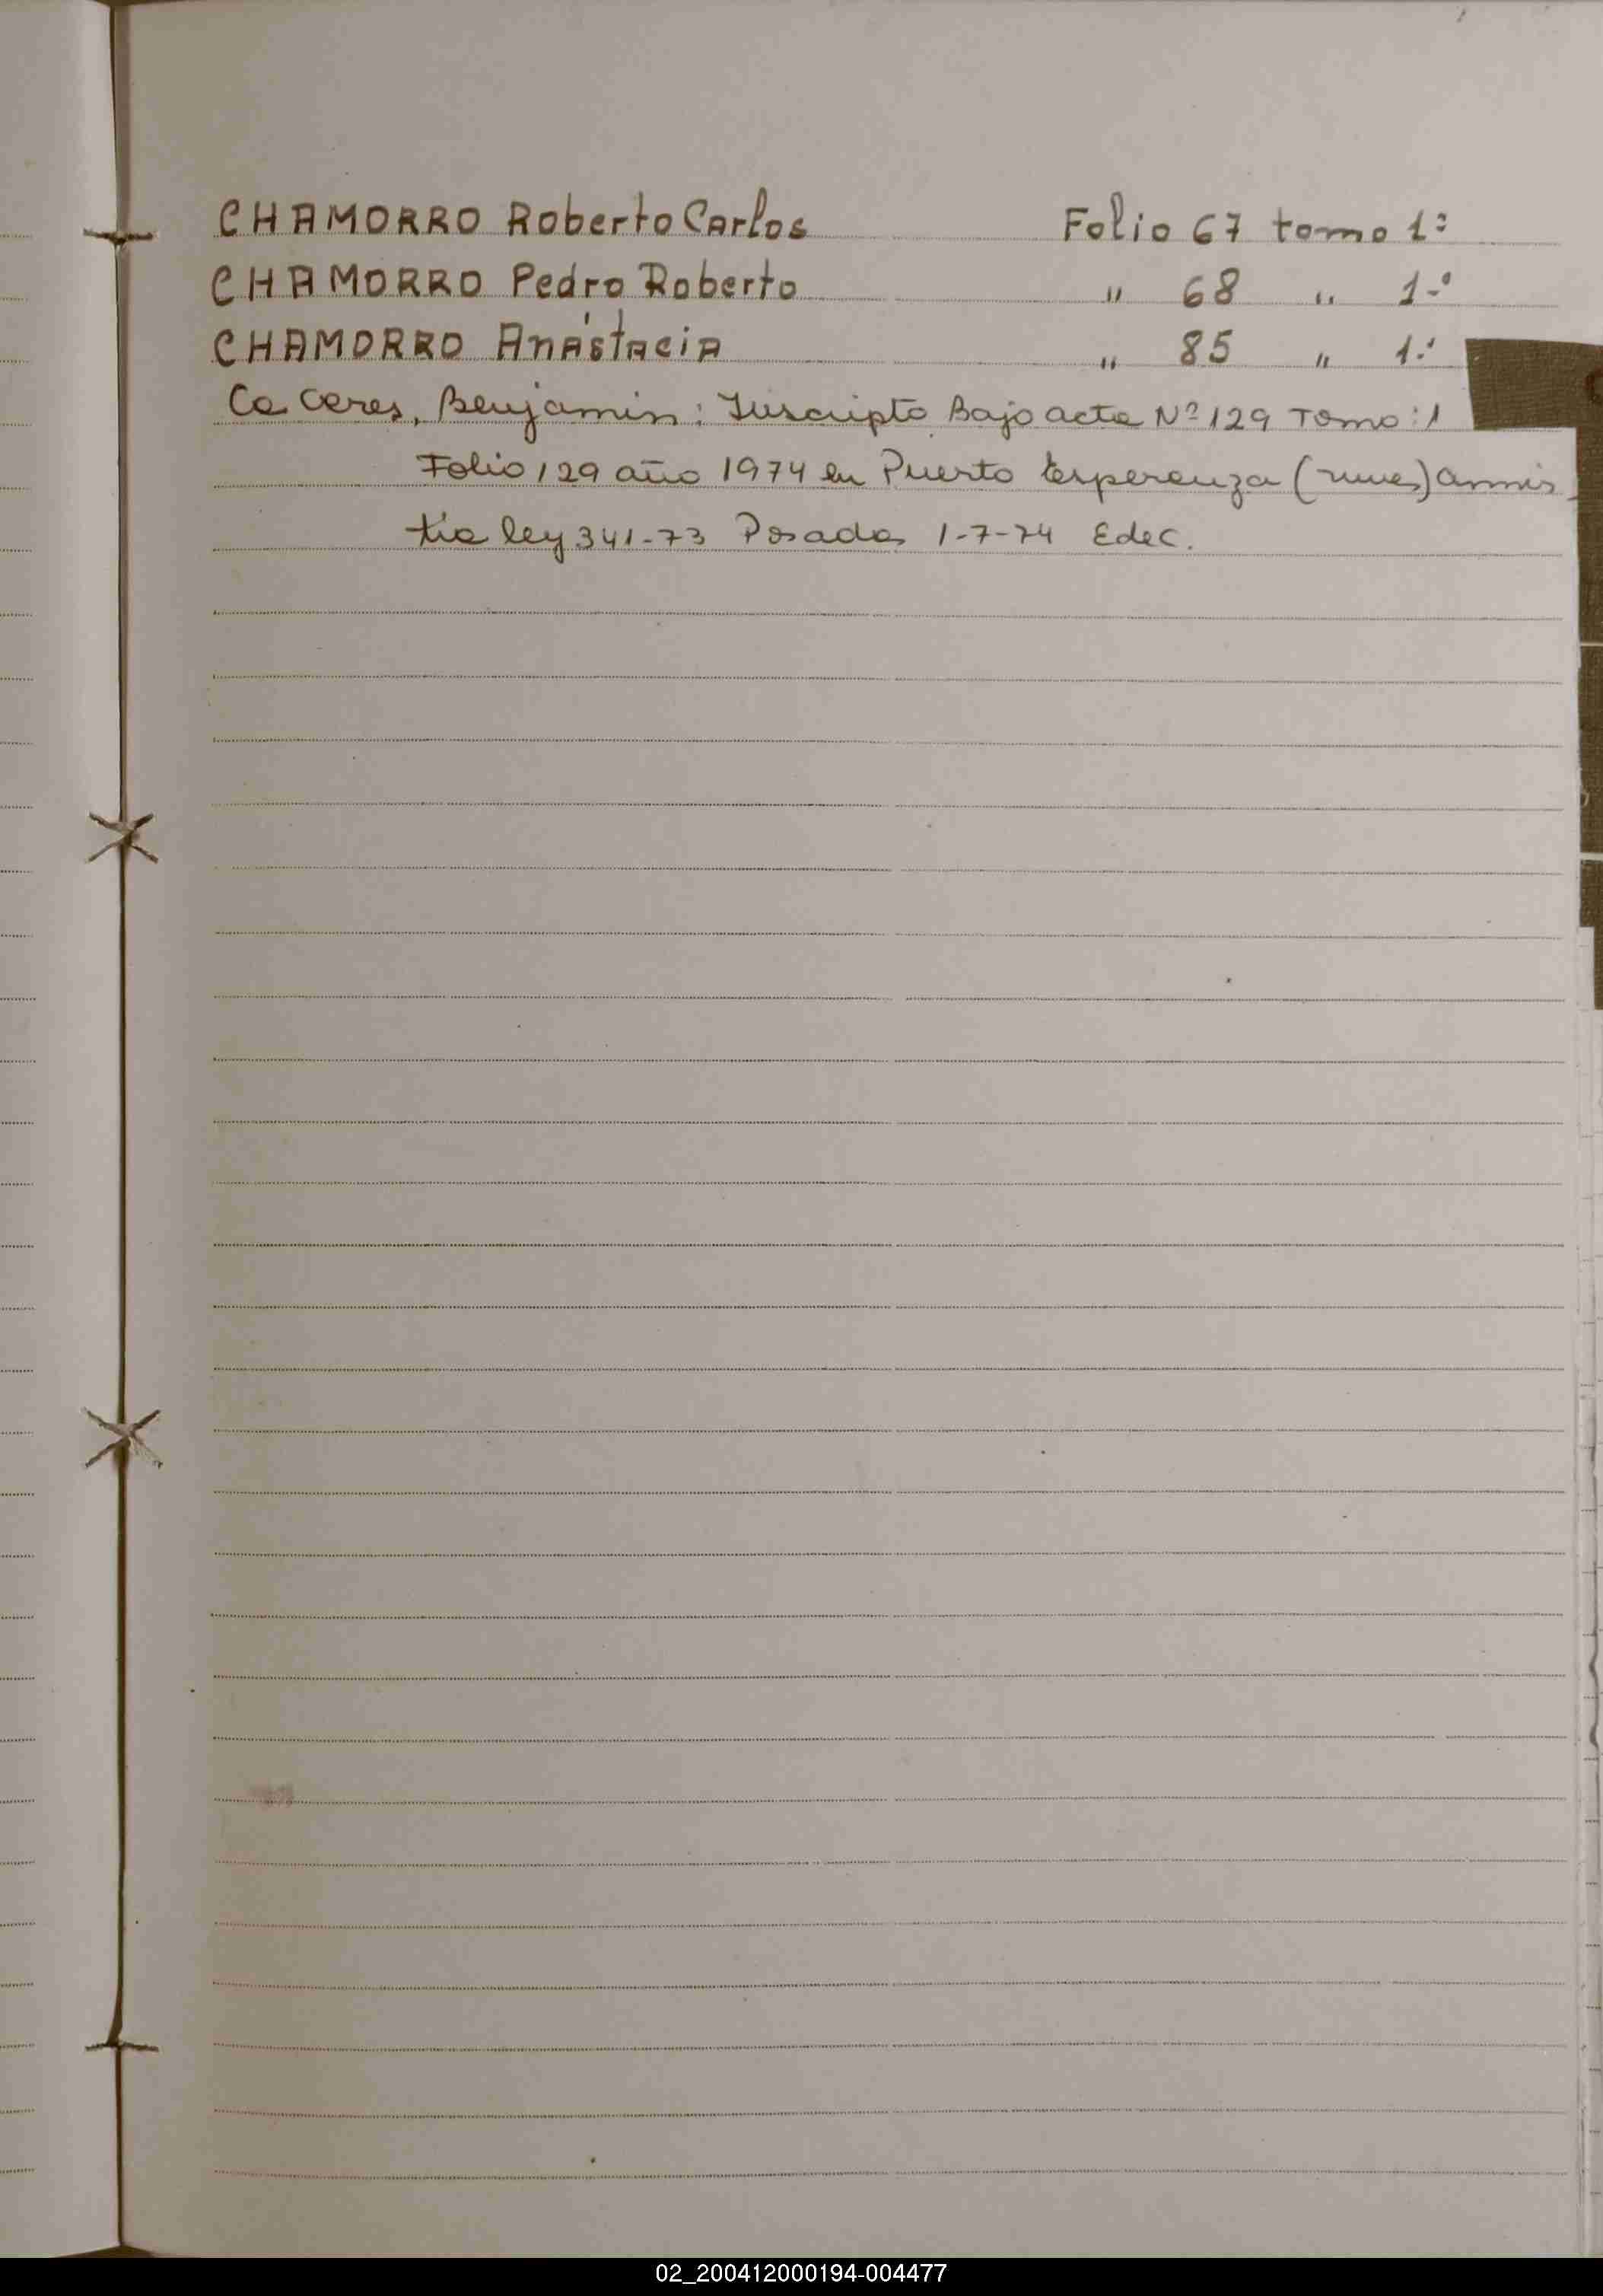 CHAMORRO Roberto Carlos Folio 67 tomo 1º
CHAMORRO Pedro Roberto " 68 " 1º
CHAMORRO Anástacia " 85 " 1º
Caceres, Benjamin: Inscripto Bajo acta Nº 129 Tomo: 1
Folio 129 año 1974 en Puerto Esperanza (mnes) amnis
tia ley 341-73 Posadas 1-7-74 Edec.
02_200412000194-004477